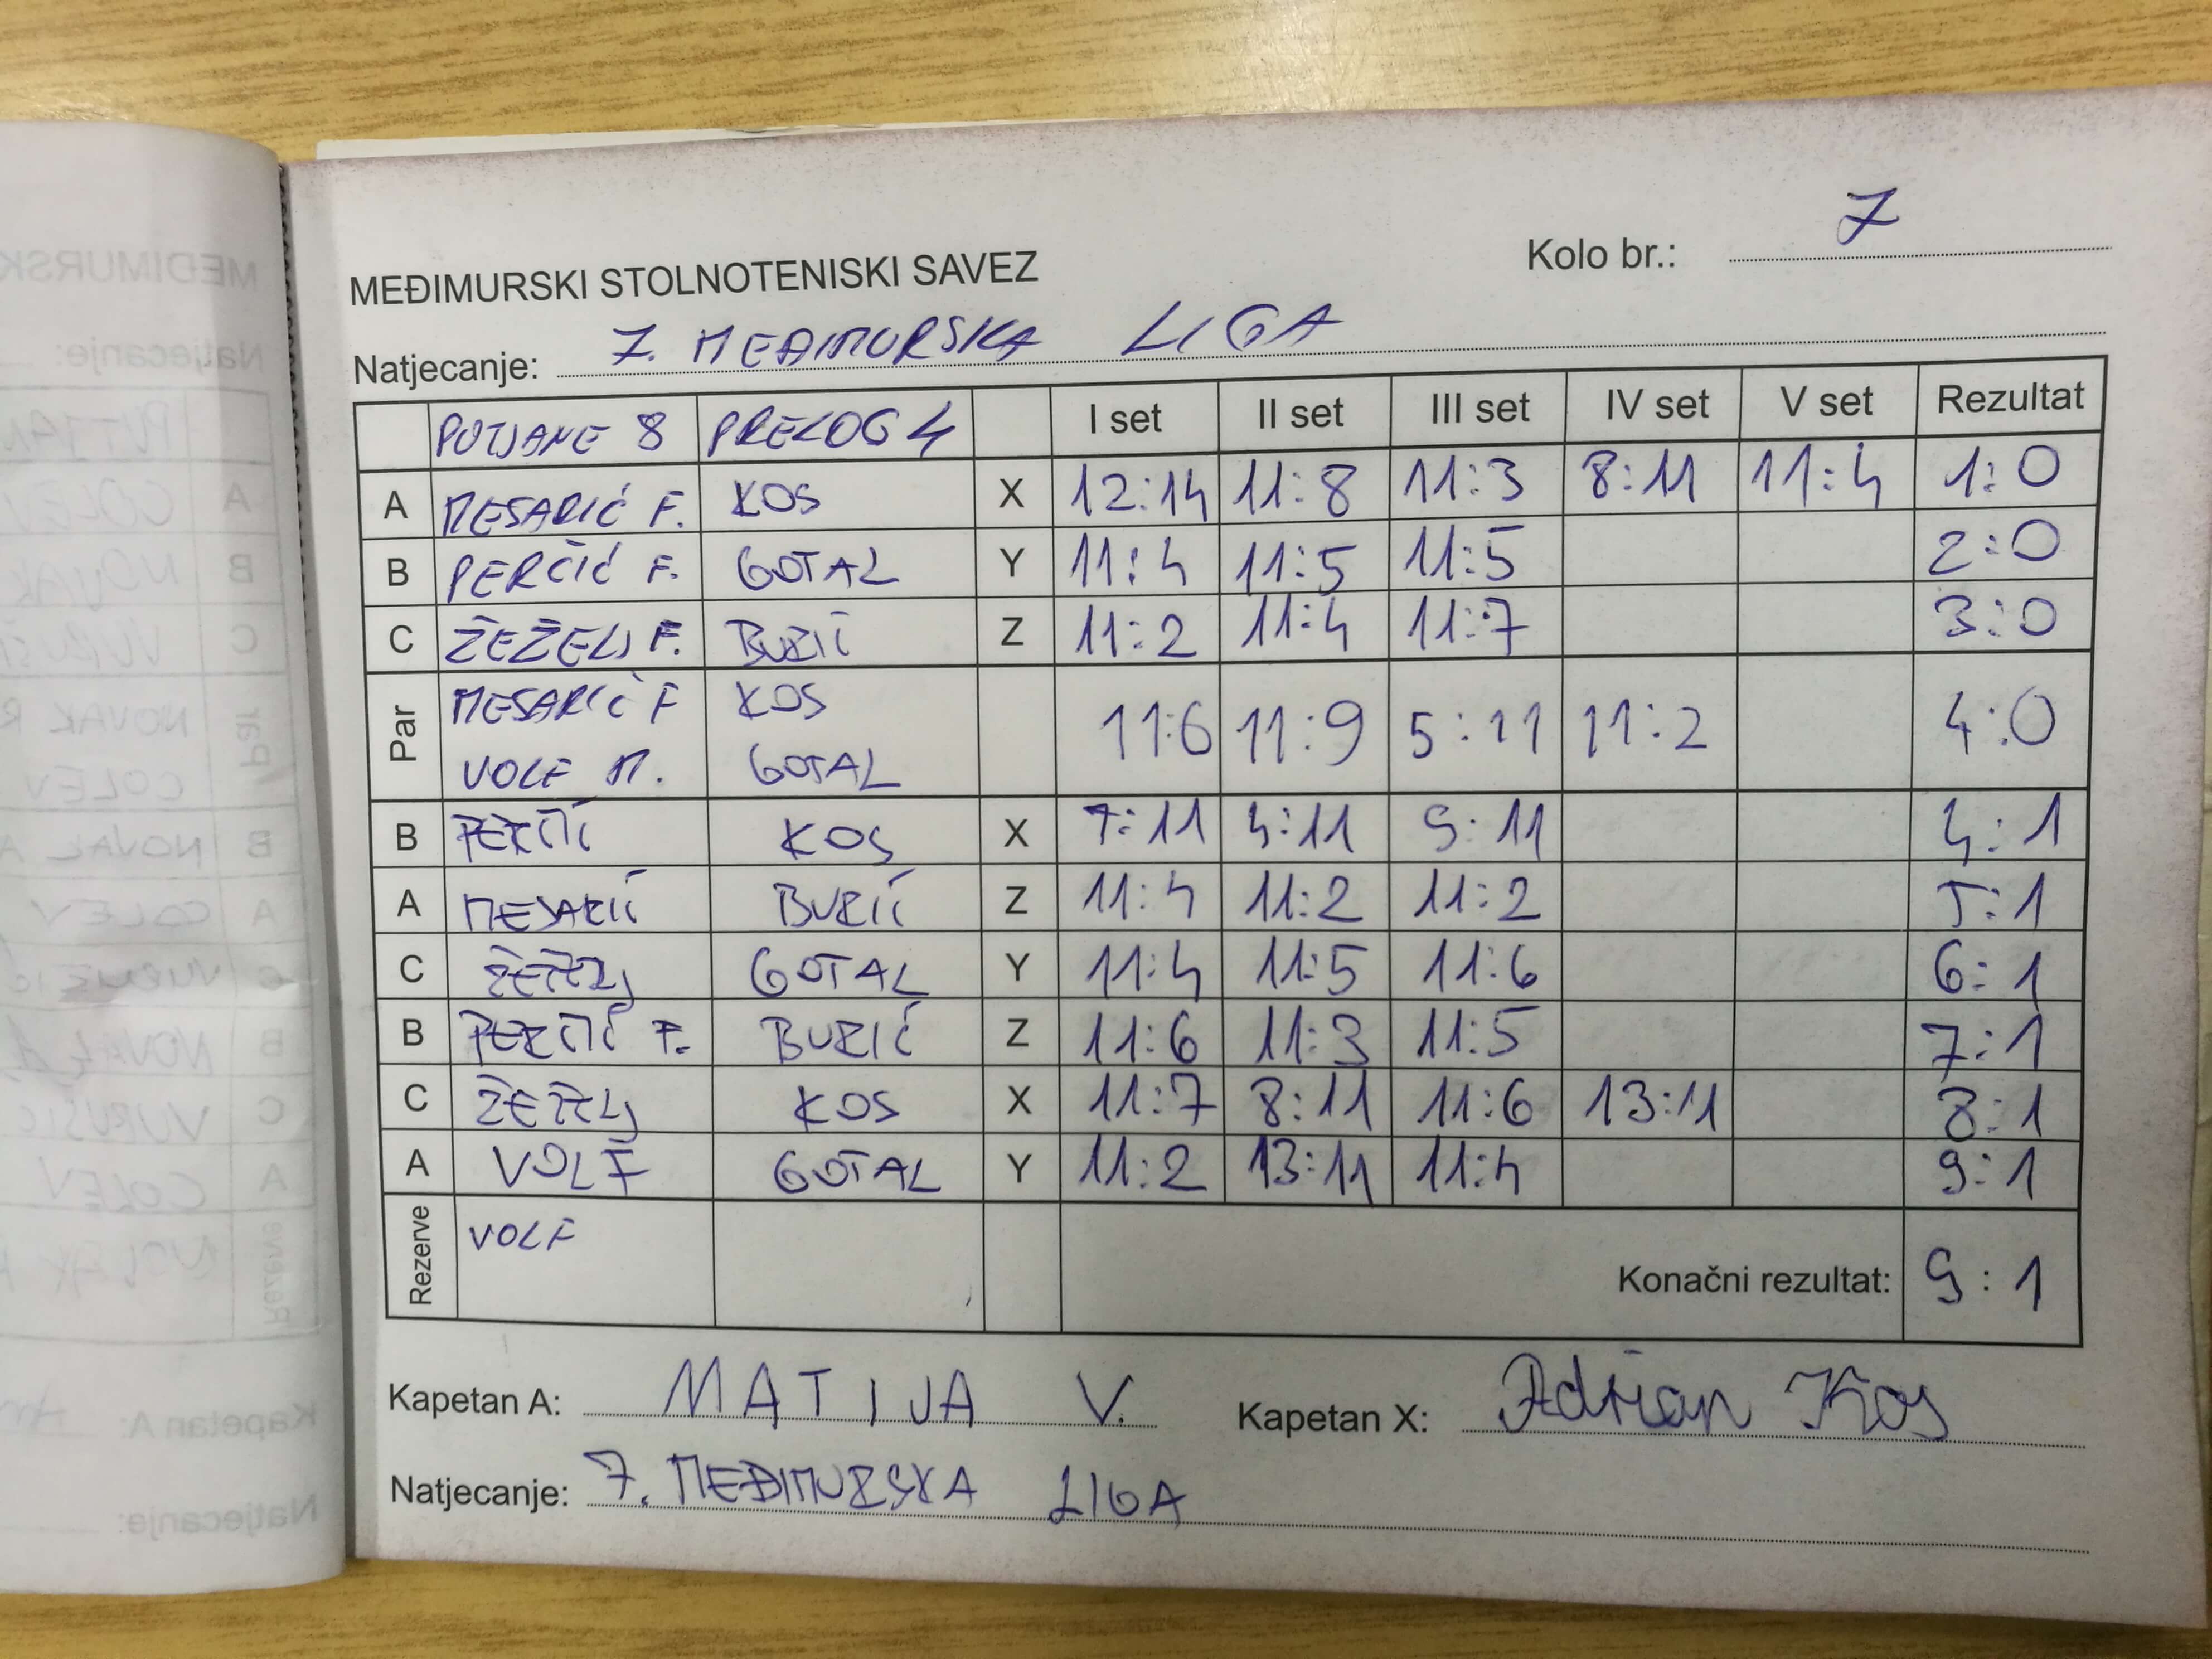 Kolo br.: 7
MEĐIMURSKI STOLNOTENISKI SAVEZ
Natjecanje: 7. MEĐIMURSKA LIGA
PUTJANE 8 PRELOG 4 I set II set III set IV set V set Rezultat
A MESARIĆ F. KOS X 12:14 11:8 11:3 8:11 11:4 1:0
B PERČIĆ F. GOTAL Y 11:4 11:5 11:5 2:0
C ŽEŽELJ F. BUZIĆ Z 11:2 11:4 11:7 3:0
Par MESARIĆ F KOS 11:6 11:9 5:11 11:2 4:0
VOLF M. GOTAL
B PERČIĆ KOS X 7:11 4:11 9:11 4:1
A MESARIĆ BUZIĆ Z 11:4 11:2 11:2 5:1
C ŽEŽELJ GOTAL Y 11:4 11:5 11:6 6:1
B PERČIĆ F. BUZIĆ Z 11:6 11:3 11:5 7:1
C ŽEŽELJ KOS X 11:7 8:11 11:6 13:11 8:1
A VOLF GOTAL Y 11:2 13:11 11:4 9:1
Rezerve VOLF
Konačni rezultat: 9:1
Kapetan A: MATIJA V. Kapetan X: Adrian Kos
Natjecanje: 7. MEĐIMURSKA LIGA